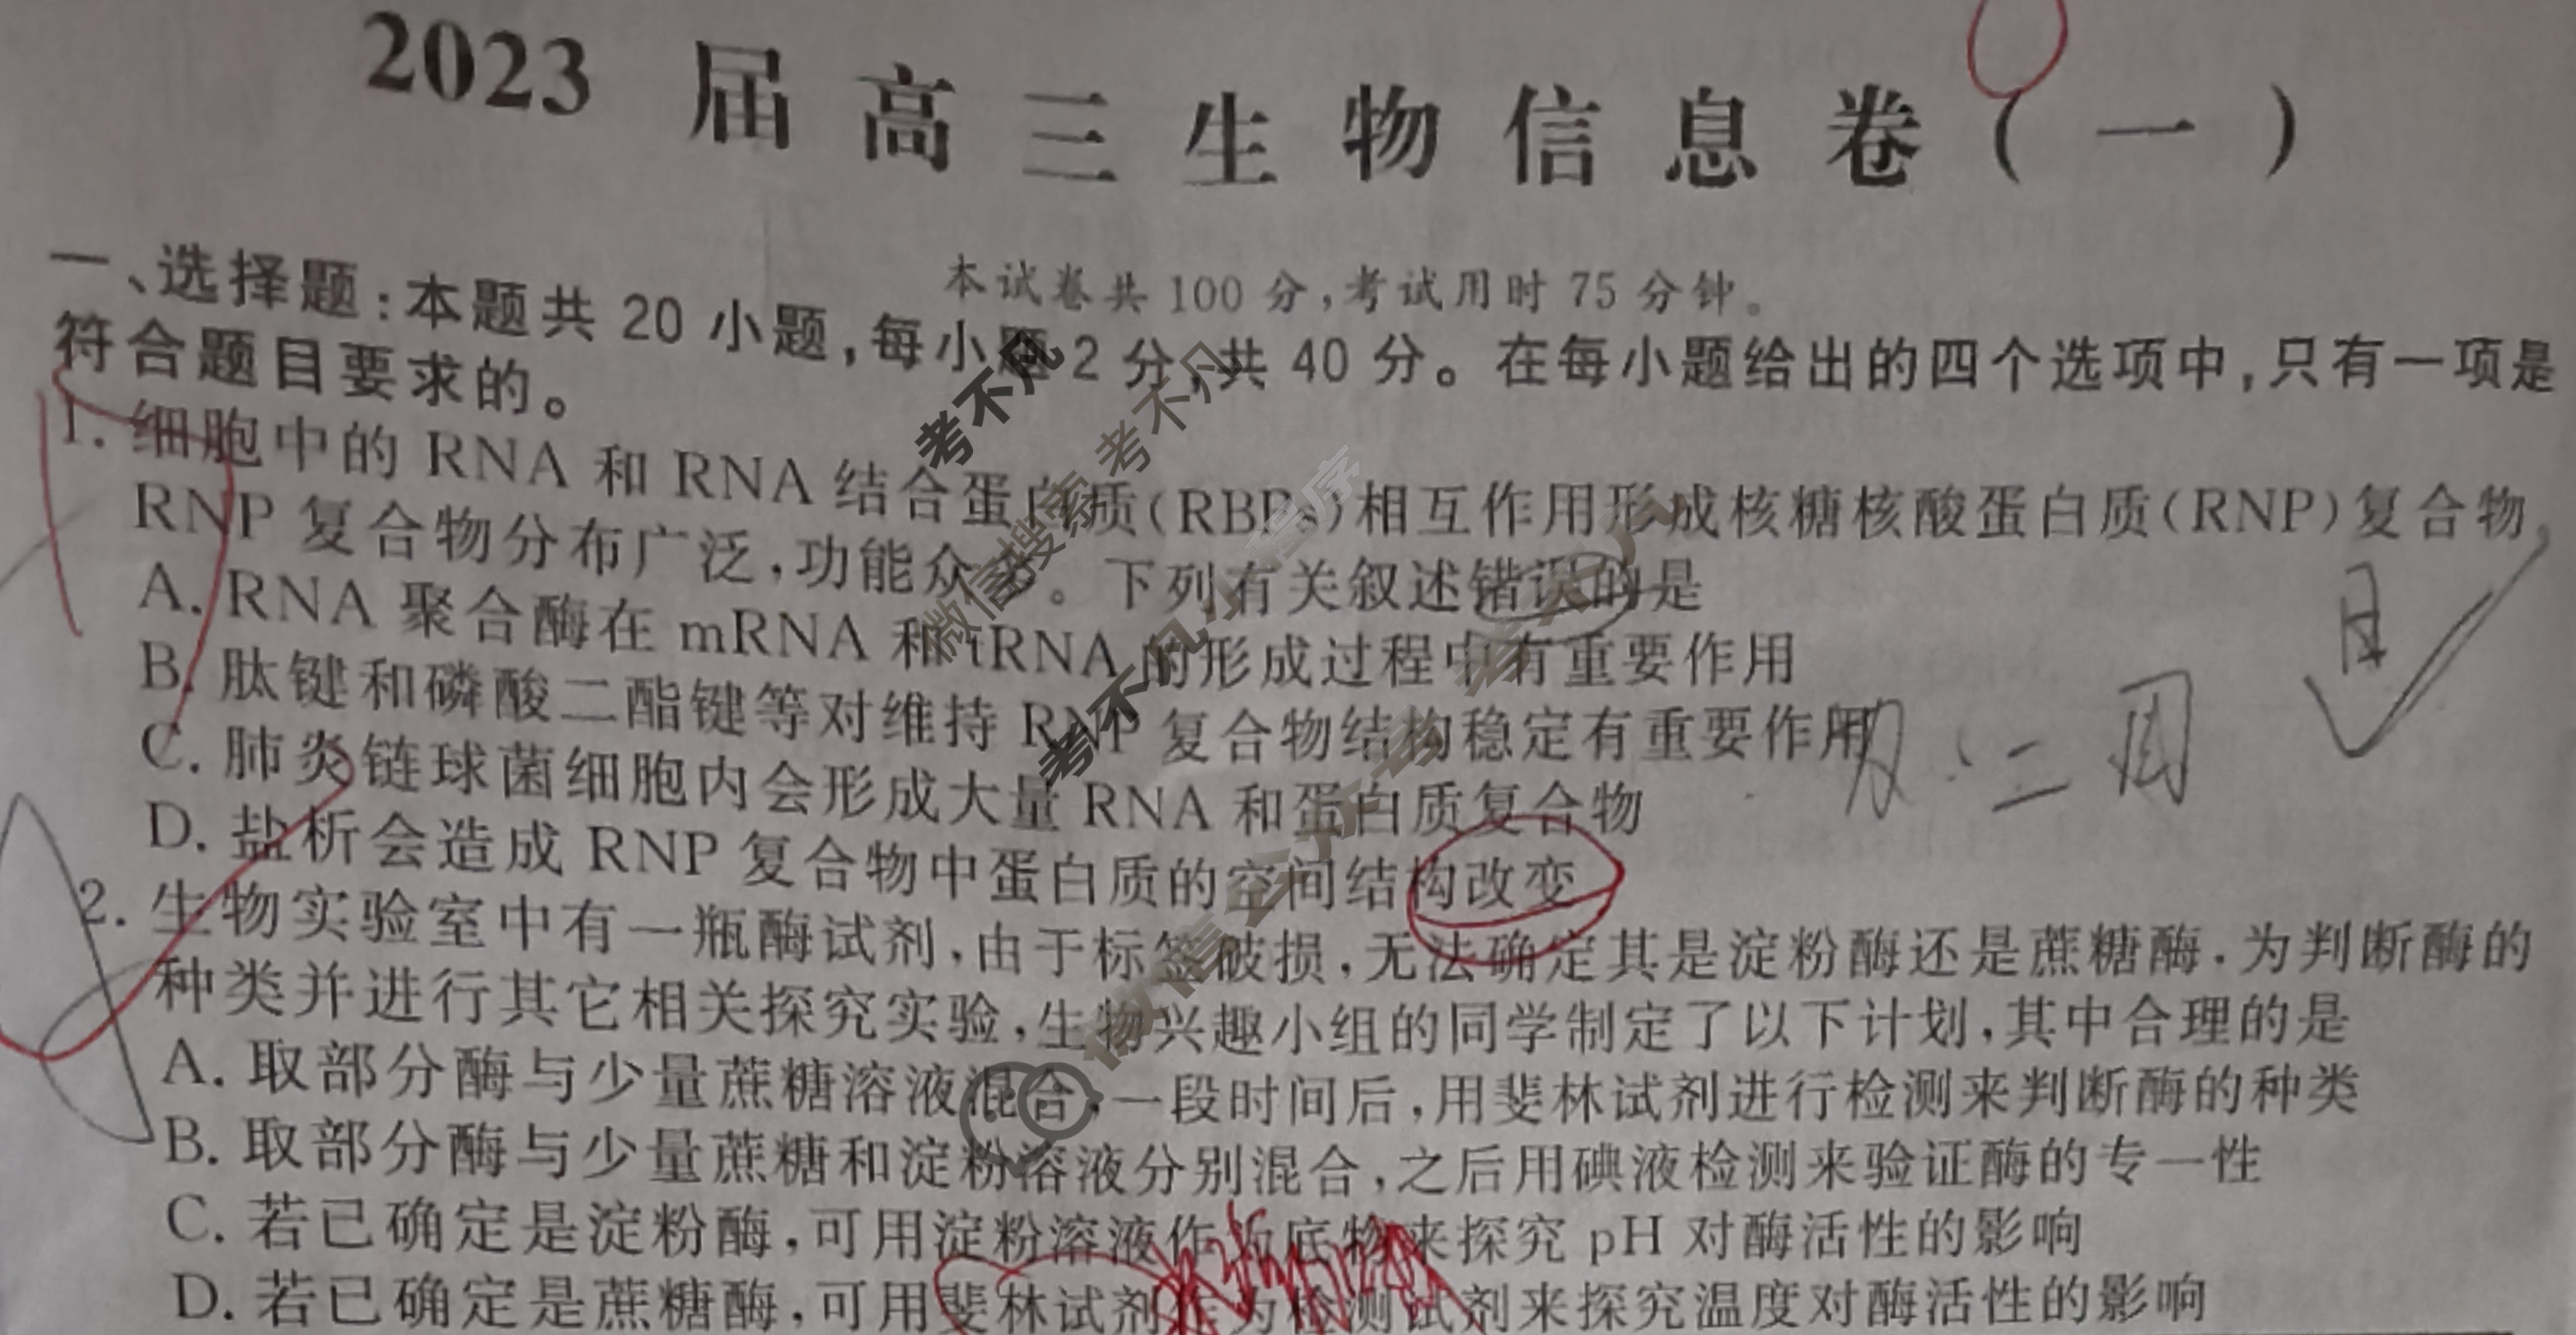 2023 届高三生物信息卷(一)
本试卷共 100 分,考试用时 75 分钟。
一、选择题:本题共 20 小题,每小题 2 分,共 40 分。在每小题给出的四个选项中,只有一项是
符合题目要求的。
1. 细胞中的 RNA 和 RNA 结合蛋白质(RBPs)相互作用形成核糖核酸蛋白质(RNP)复合物,
RNP 复合物分布广泛,功能众多。下列有关叙述错误的是
A. RNA 聚合酶在 mRNA 和 tRNA 的形成过程中有重要作用
B. 肽键和磷酸二酯键等对维持 RNP 复合物结构稳定有重要作用
C. 肺炎链球菌细胞内会形成大量 RNA 和蛋白质复合物
D. 盐析会造成 RNP 复合物中蛋白质的空间结构改变
2. 生物实验室中有一瓶酶试剂,由于标签破损,无法确定其是淀粉酶还是蔗糖酶.为判断酶的
种类并进行其它相关探究实验,生物兴趣小组的同学制定了以下计划,其中合理的是
A. 取部分酶与少量蔗糖溶液混合,一段时间后,用斐林试剂进行检测来判断酶的种类
B. 取部分酶与少量蔗糖和淀粉溶液分别混合,之后用碘液检测来验证酶的专一性
C. 若已确定是淀粉酶,可用淀粉溶液作为底物来探究 pH 对酶活性的影响
D. 若已确定是蔗糖酶,可用斐林试剂作为检测试剂来探究温度对酶活性的影响
考不凡
微信搜索 考不凡
考不凡小程序
微信公众号 考不凡